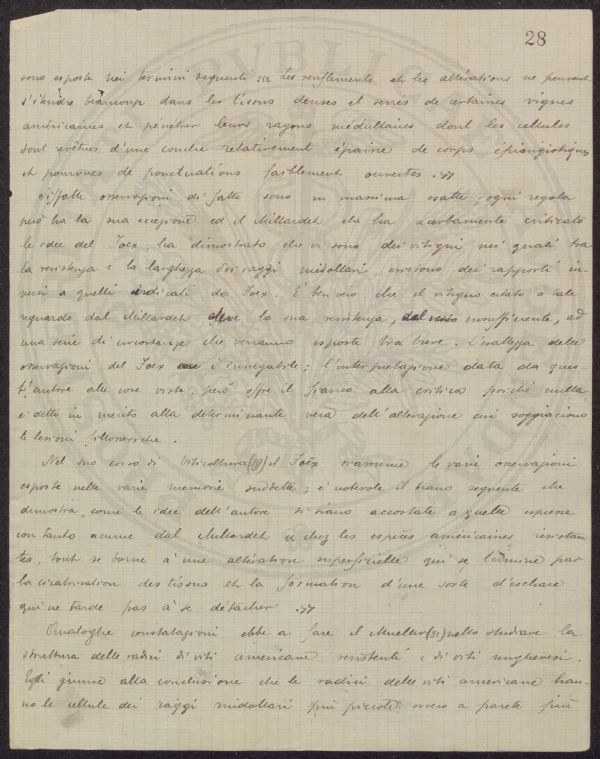 28
sono esposte nei termini seguenti: « Les renflements et les altérations ne peuvent
s'étendre beaucoup dans les tissus denses et serrés de certaines vignes
américaines et pénétrer leurs rayons médullaires dont les cellules
sont revêtues d'une couche relativement épaisse de corps épiangiotiques
et pourvues de ponctuations faiblement ouvertes. »
Siffatte osservazioni di fatto sono in massima esatte; ogni regola
però ha la sua eccezione ed il Millardet che ha acerbamente criticato
le idee del Foëx, ha dimostrato che vi sono dei vitigni, nei quali tra
la resistenza e la larghezza dei raggi midollari, esistono dei rapporti in-
versi a quelli indicati da Foëx. È ben vero che il vitigno citato a tale
riguardo dal Millardet deve la sua resistenza, insufficiente, ad
una serie di circostanze che verranno esposte tra breve. L'esattezza delle
osservazioni del Foëx è innegabile; l'interpretazione data da ques-
t'autore alle cose viste, però offre il fianco alla critica poiché nulla
è detto in merito alla determinante vera dell'alterazione cui soggiaciono
le lesioni fillosseriche.
Nel suo corso di Viticoltura (19) il Foëx riassume le varie osservazioni
esposte nelle varie memorie suddette; è notevole il brano seguente che
dimostra come le idee dell'autore si siano accostate a quelle espresse
con tanto acume dal Millardet « chez les espèces américaines résistan-
tes, tout se borne à une altération superficielle qui se termine par
la cicatrisation des tissus et la formation d'une sorte d'eschare
qui ne tarde pas à se détacher. »
Analoghe constatazioni ebbe a fare il Mueller (31) nello studiare la
struttura delle radici di viti americane resistenti e di viti ungheresi.
Egli giunse alla conclusione che le radici delle viti americane han-
no le cellule dei raggi midollari più piccole ovvero a parete più